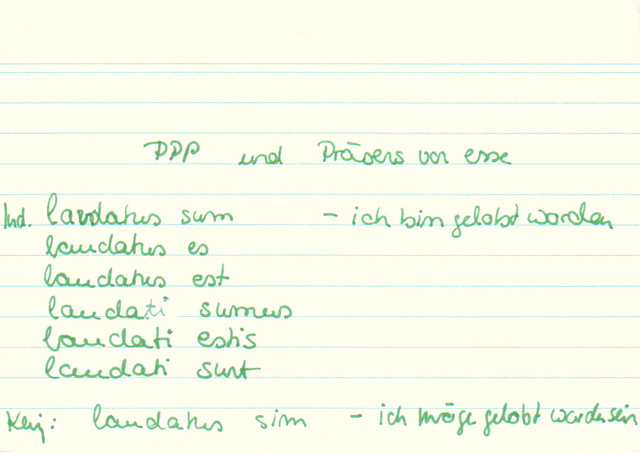 PPP und Präsens von esse
Ind. laudatus sum - ich bin gelobt worden
laudatus es
laudatus est
laudati sumus
laudati estis
laudati sunt
Konj: laudatus sim - ich möge gelobt worden sein